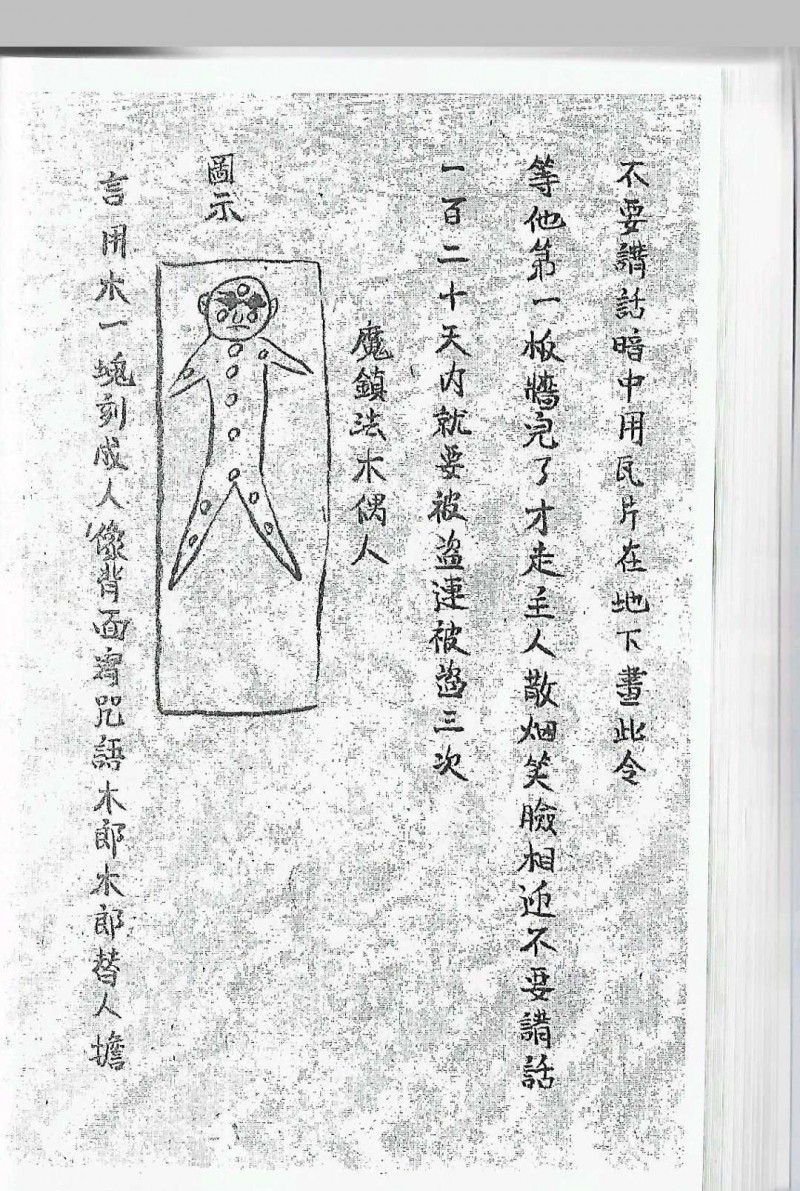 不要講話暗中用瓦片在地下畫此令
等他第一板牆完了才走主人散烟笑臉相迎不要講話
一百二十天内就要被盜連被盜三次
魔鎮法木偶人
圖示
言用木一塊刻成人像背面寫咒語木郎木郎替人擔